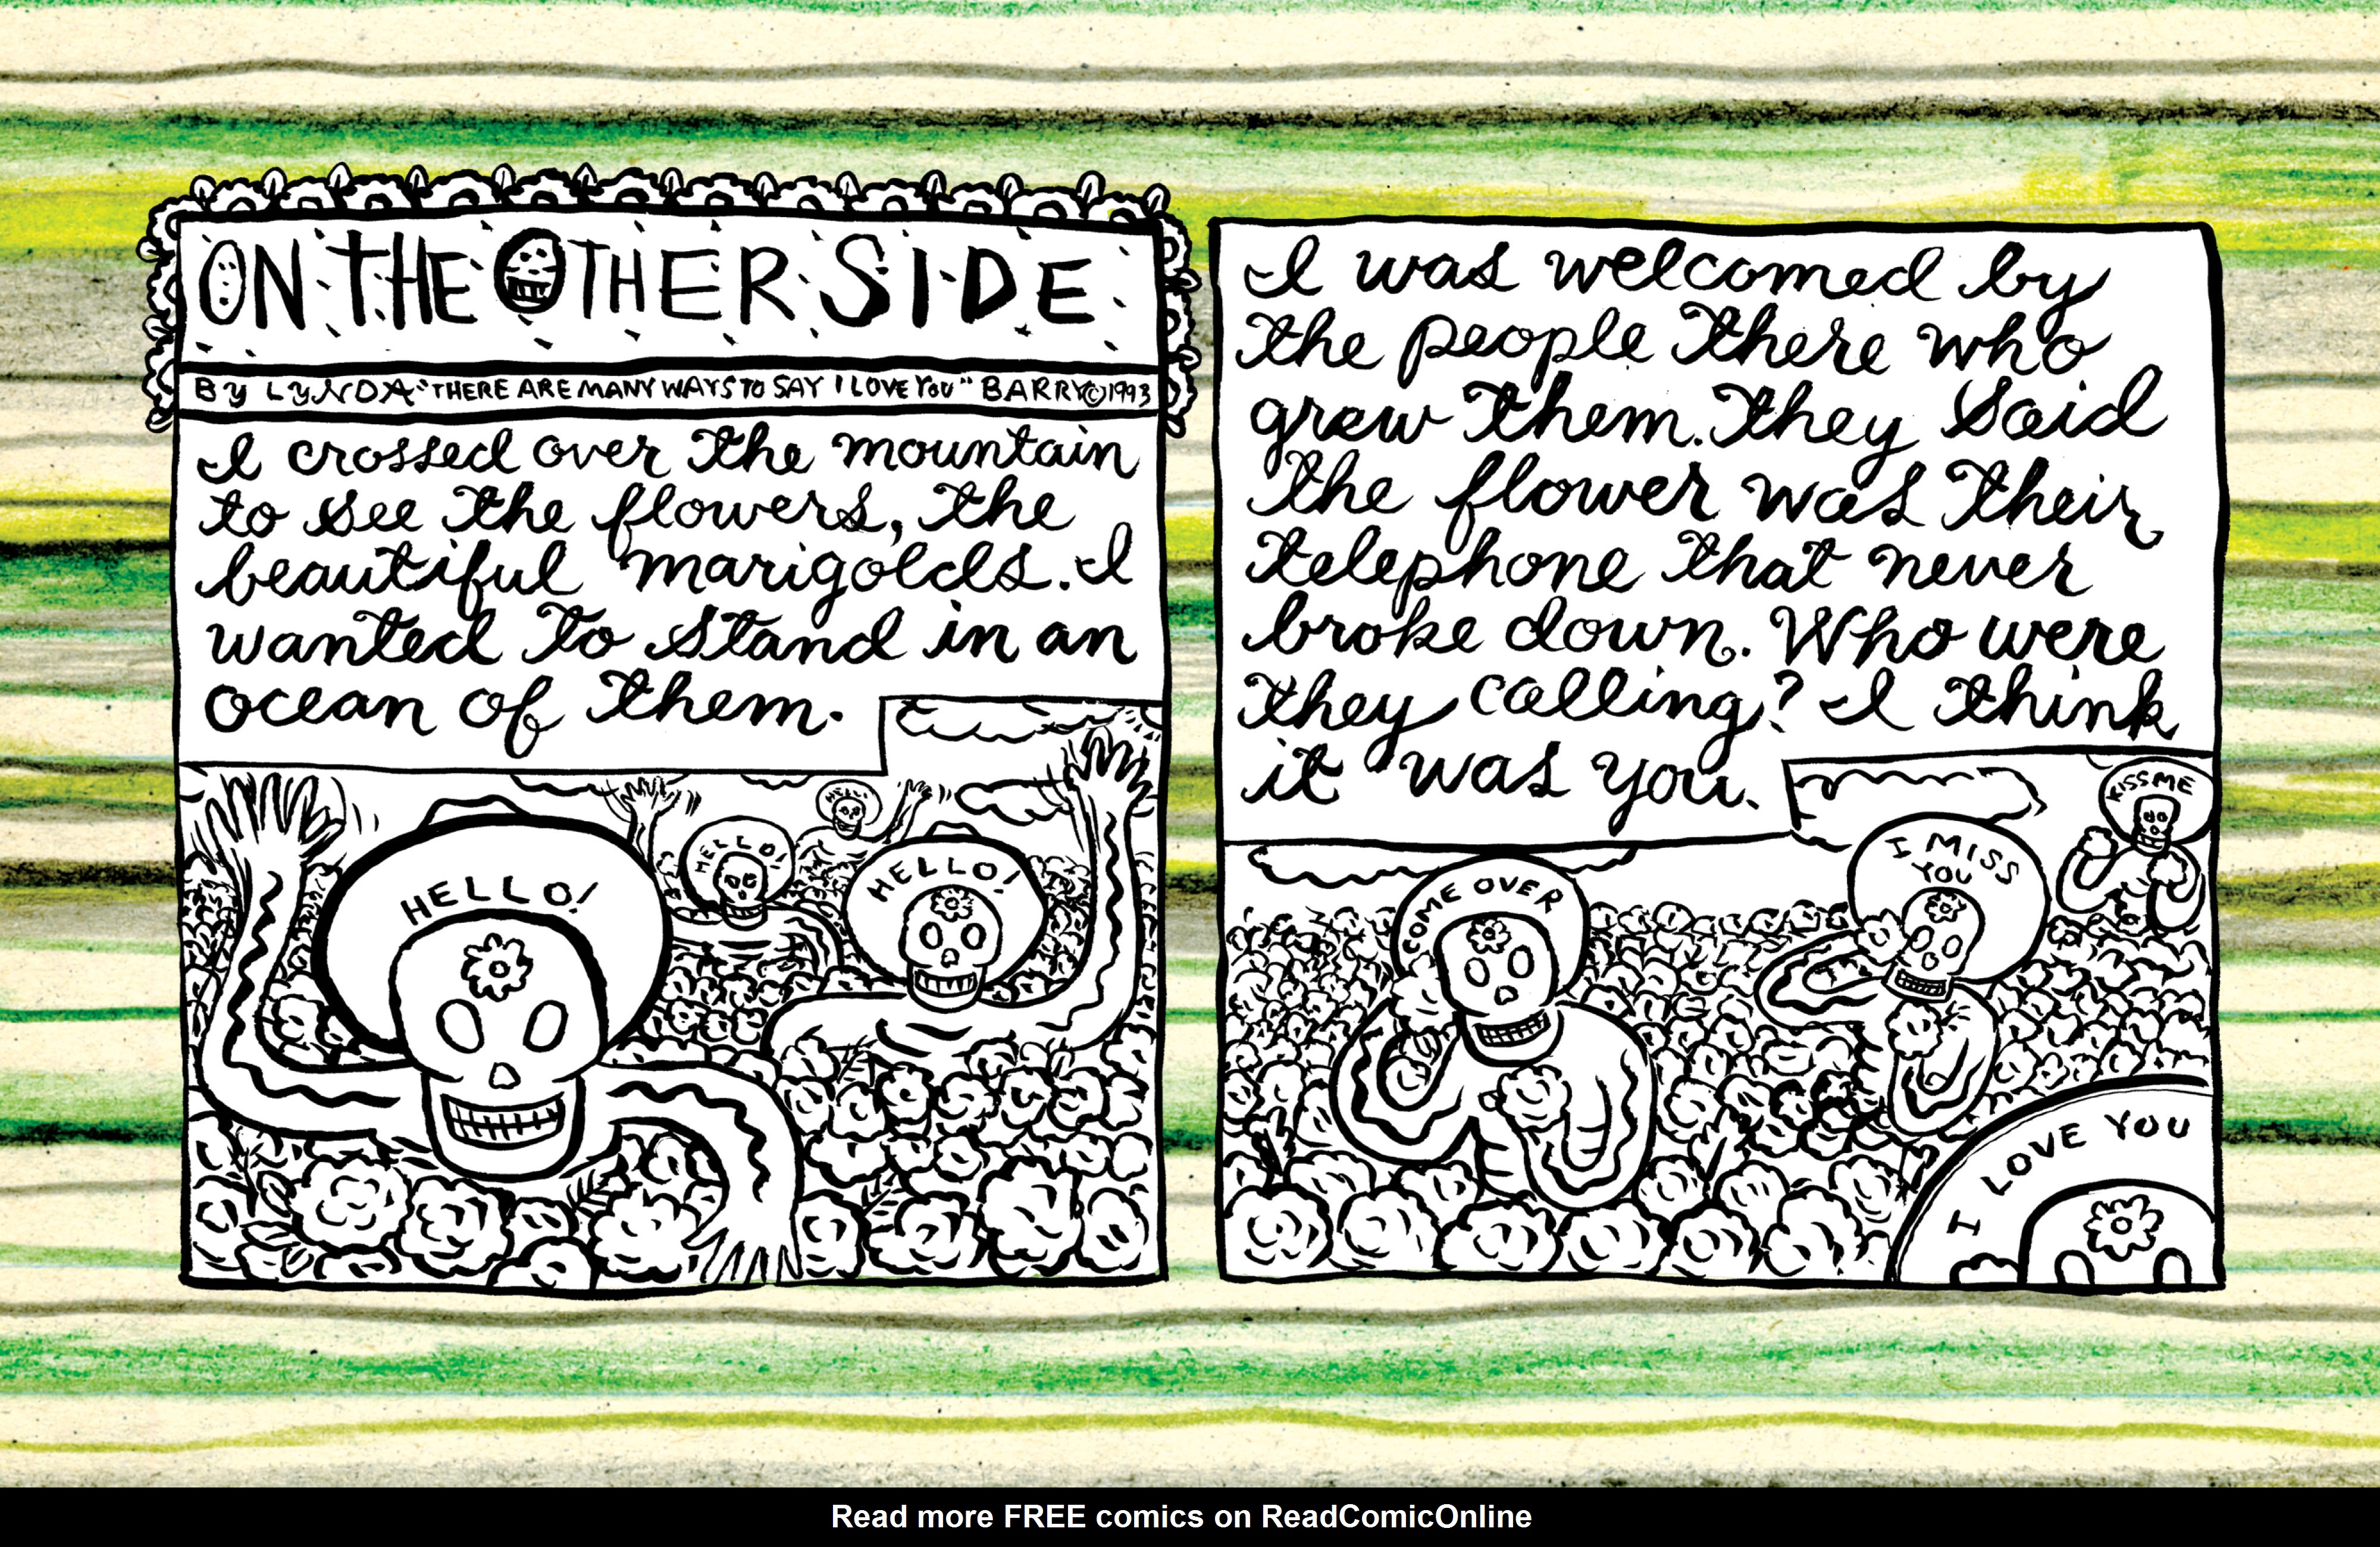 ON THE OTHER SIDE
BY LYNDA "THERE ARE MANY WAYS TO SAY I LOVE YOU" BARRY © 1993
I crossed over the mountain
to see the flowers, the
beautiful marigolds. I
wanted to stand in an
ocean of them.
HELLO!
HELLO!
HELLO!
HELLO!
I was welcomed by
the people there who
grew them. They said
the flower was their
telephone that never
broke down. Who were
they calling? I think
it was you.
COME OVER
I MISS
YOU
KISS ME
I LOVE YOU
Read more FREE comics on ReadComicOnline